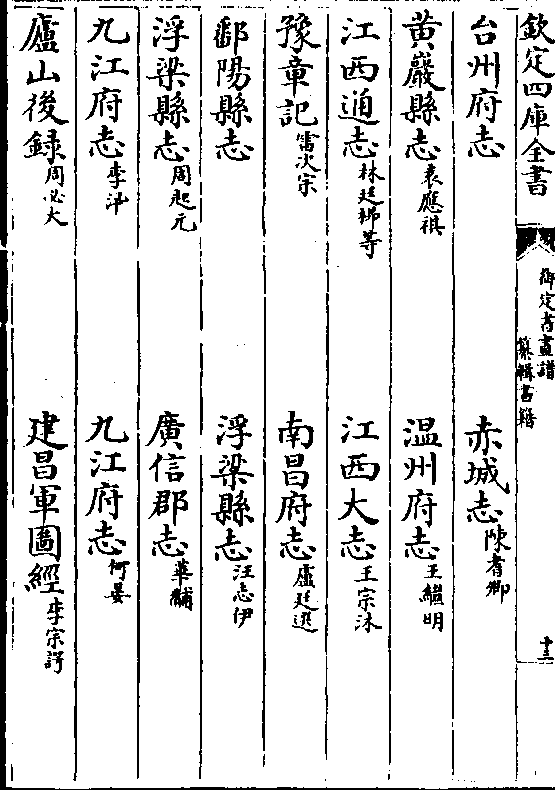 欽定四庫全書
御定書畫譜
纂輯書籍
十三
台州府志
赤城志陳耆卿
黄巖縣志袁應祺
温州府志王繼明
江西通志林廷㭿等
江西大志王宗沐
豫章記雷次宗
南昌府志盧廷選
鄱陽縣志
浮梁縣志汪志伊
浮梁縣志周起元
廣信郡志
九江府志李汛
九江府志何晏
廬山後録周必大
建昌軍圖經李宗諤